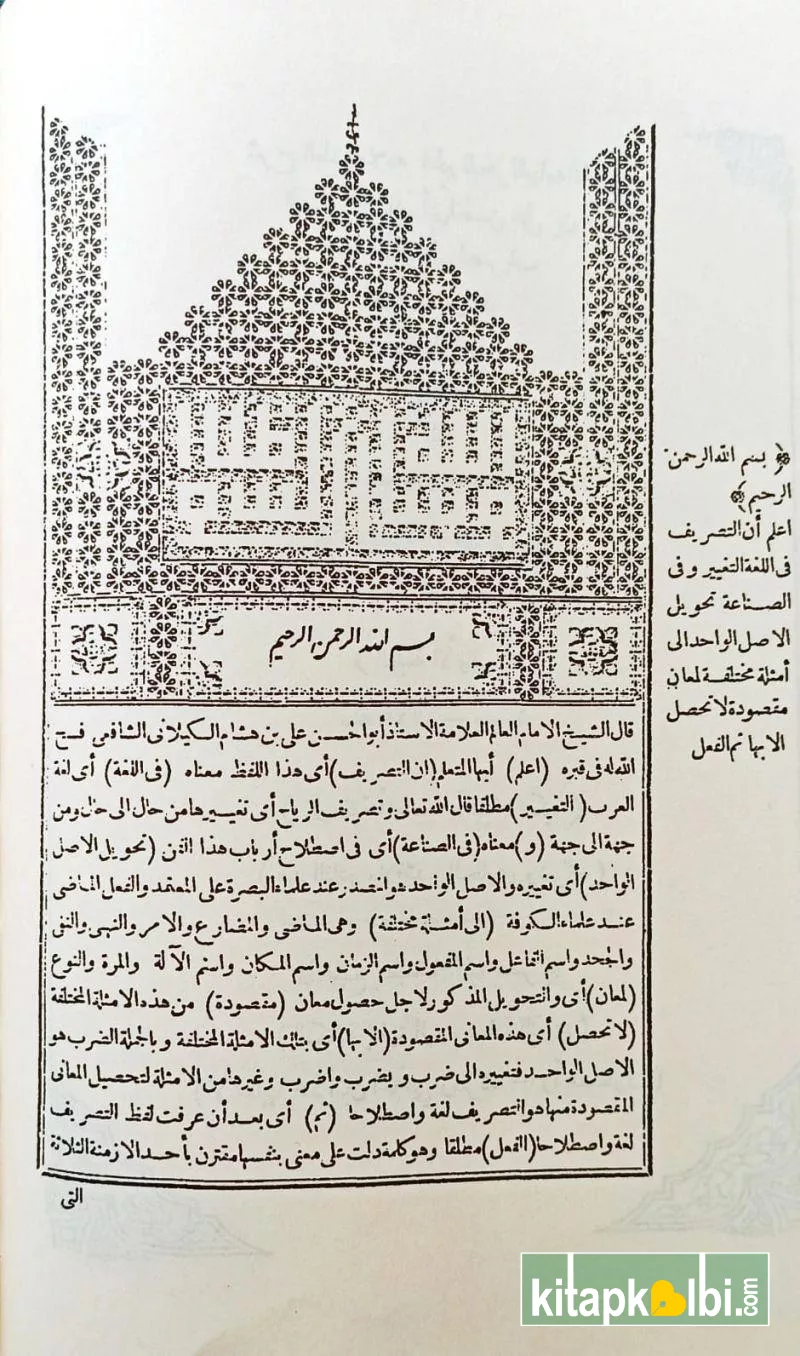 بسم الله الرحمن الرحيم
قال الشيخ الامام العالم العلامة الاستاذ أبو الحسن على بن هشام الكيلانى الشافعى فسح
الله له فى قبره (اعلم) أيها المتعلم (ان التصريف) أى هذا اللفظ معناه (فى اللغة) أى لغة
العرب (التغيير) مطلقا قال الله تعالى وتصريف الرياح أى تغييرها من حال الى حال ومن
جهة الى جهة (و) معناه (فى الصناعة) أى فى اصطلاح أرباب هذا الفن (تحويل الاصل
الواحد) أى تغييره والاصل الواحد هو المصدر عند علماء البصرة على المعتمد والفعل الماضى
عند علماء الكوفة (الى أمثلة مختلفة) وهى الماضى والمضارع والامر والنهى والنفى
والجحد واسم الفاعل واسم المفعول واسم الزمان واسم المكان واسم الآلة والمرة والنوع
(لمعان) أى والتحويل المذكور لاجل حصول معان (مقصودة) من هذه الامثلة المختلفة
(لا تحصل) أى هذه المعانى المقصودة (الا بها) أى بتلك الامثلة المختلفة وبالجملة الضرب هو
الاصل الواحد فتغييره الى ضرب ويضرب واضرب وغيرها من الامثلة لتحصيل المعانى
المقصودة منها هو التصريف لغة واصطلاحا (ثم) أى بعد أن عرفت لفظ التصريف
لغة واصطلاحا (الفعل) مطلقا وهو كلمة دلت على معنى بنفسها مقترن بأحد الازمنة الثلاثة
التى
﴿بسم الله الرحمن
الرحيم﴾
اعلم أن التصريف
فى اللغة التغيير وفى
الصناعة تحويل
الاصل الواحد الى
أمثلة مختلفة لمعان
مقصودة لا تحصل
الا بها ثم الفعل
kitapkalbi.com